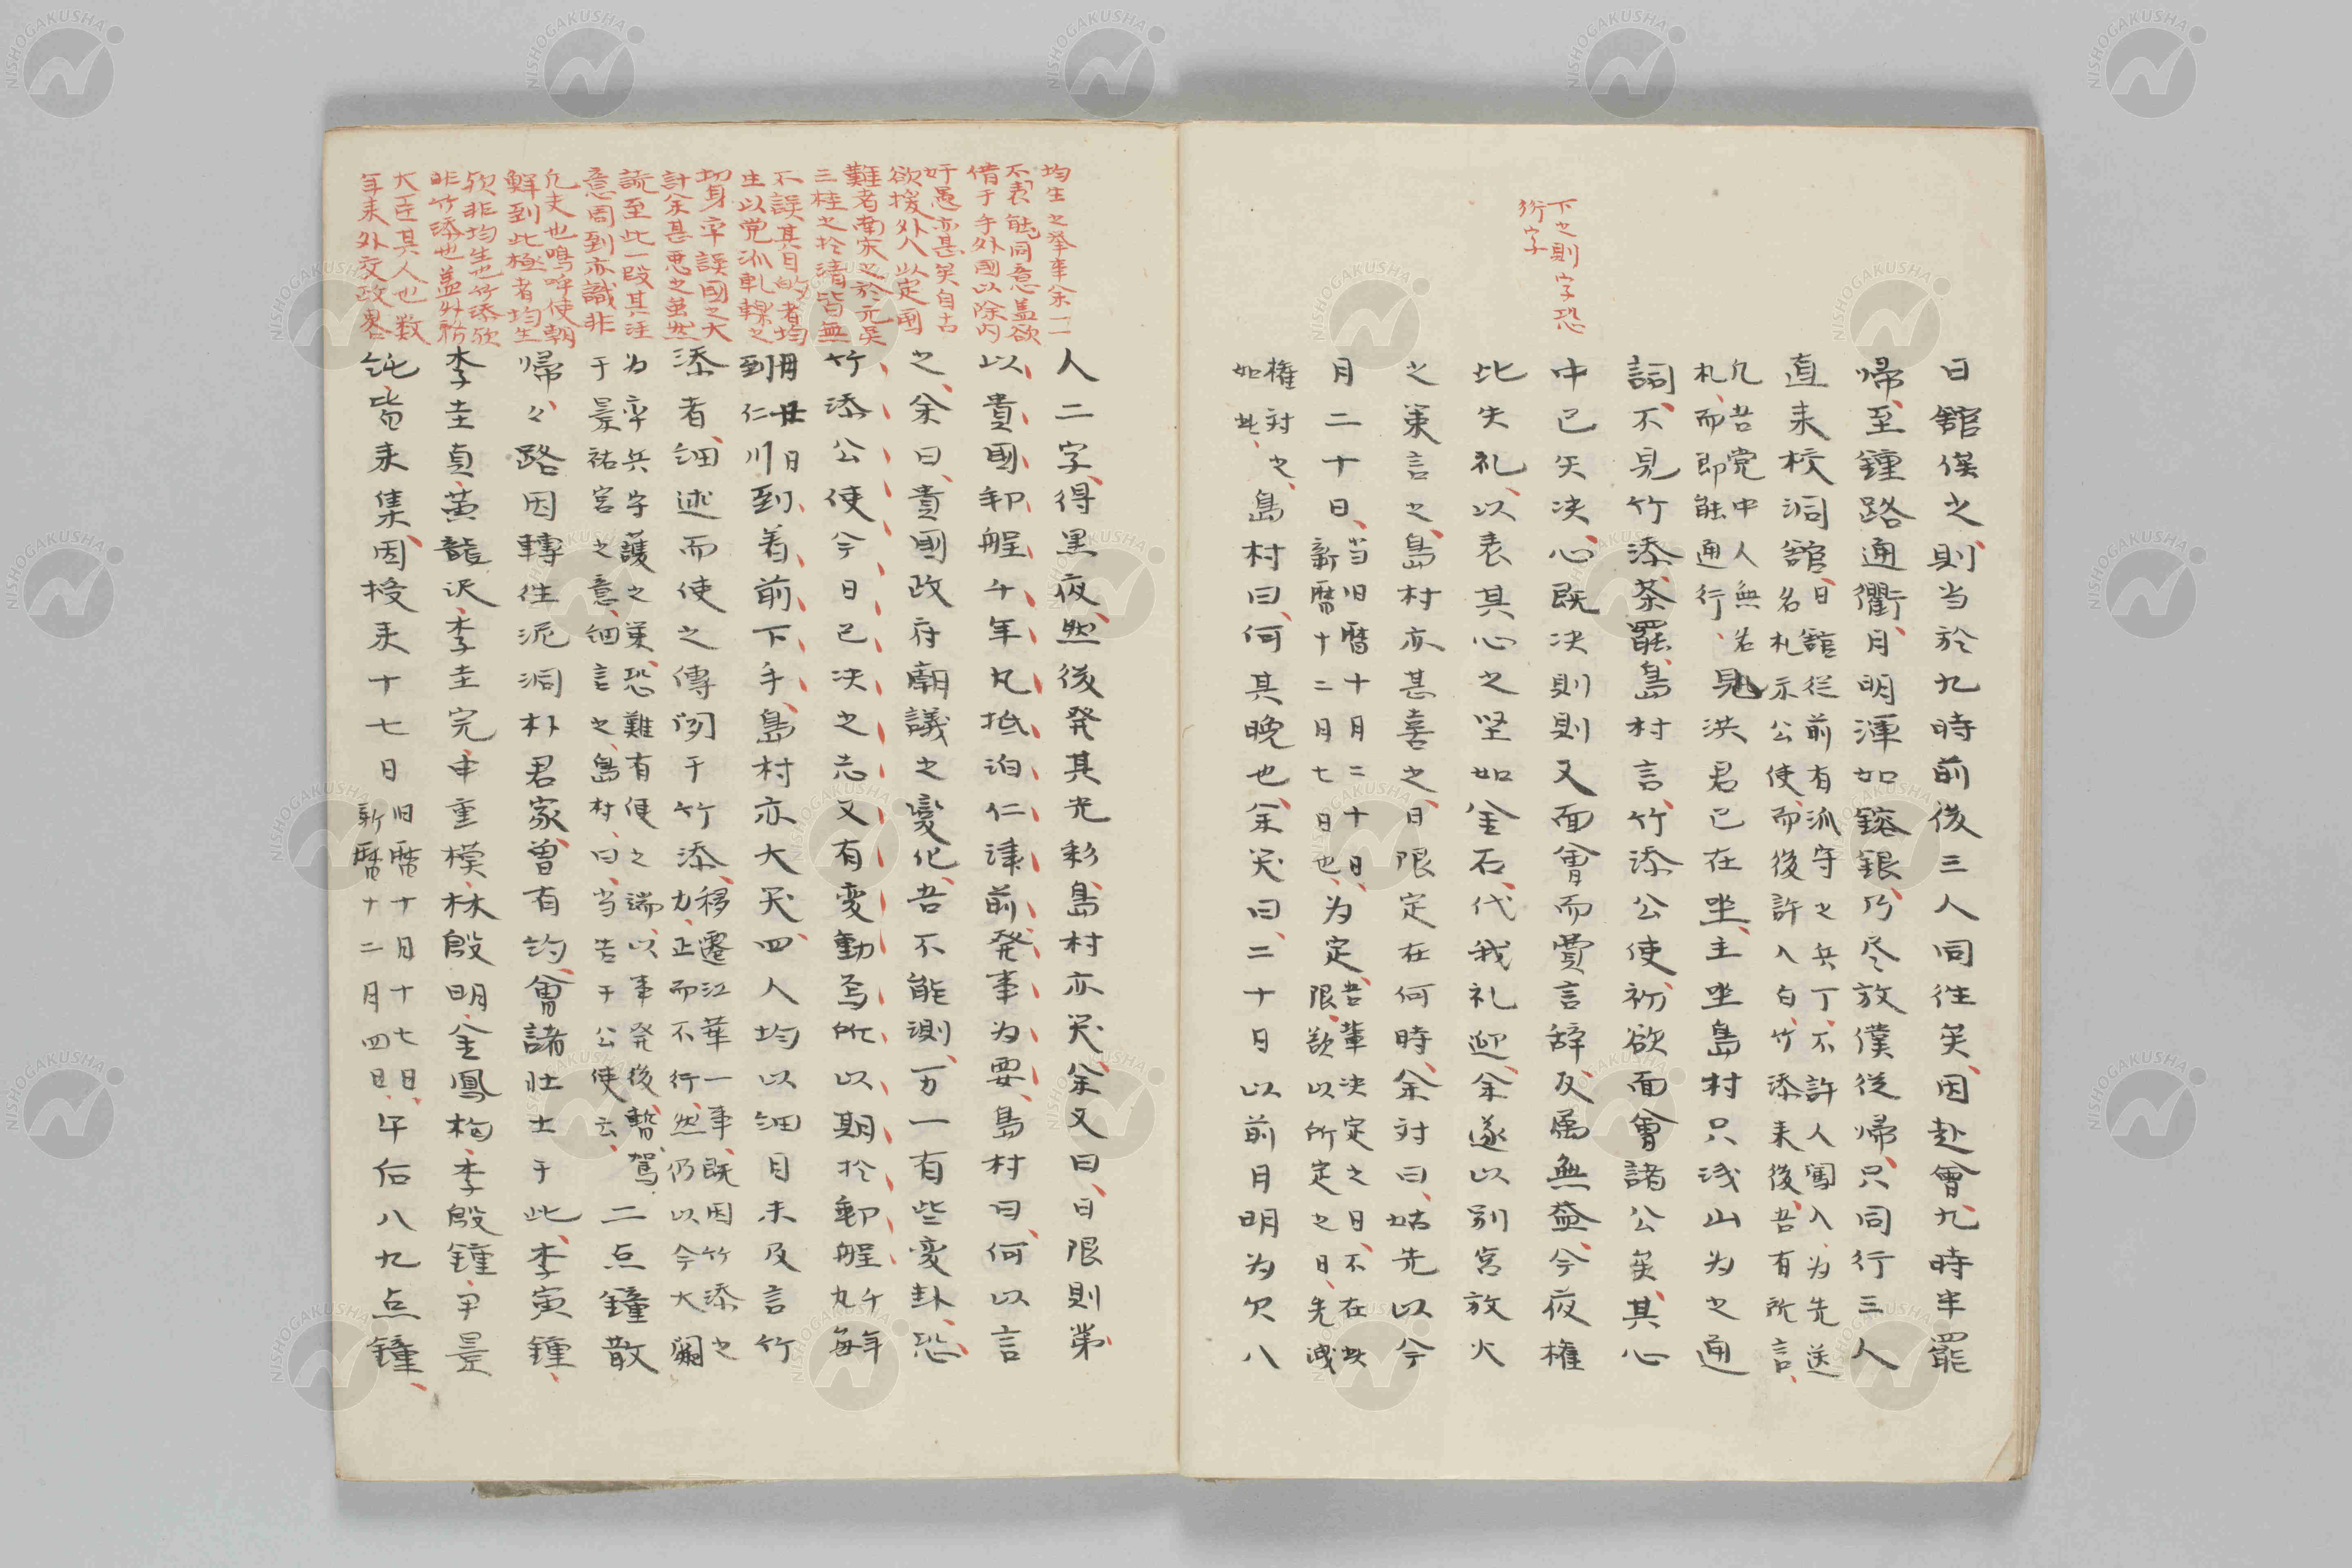 下之則字恐
衍字
日館俟之則当於九時前後三人同往矣因赴會九時半罷
帰至鍾路通衢月明渾如鎔銀乃尽放僕從帰只同行三人
直来校洞館
日館從前有派守之兵丁不許人闖入為先送
名札示公使而後許入自竹添来後吾有所言
凡吾党中人無名
札而即能通行
見洪君已在坐主坐島村只浅山為之通
詞不見竹添茶罷島村言竹添公使初欲面會諸公矣其心
中已矢决心既决則則又面會而費言辞反属無益今夜権
此失礼以表其心之堅如金石代我礼迎余遂以別宮放火
之策言之島村亦甚喜之日限定在何時余対曰姑先以今
月二十日
当旧暦十月二十日
新暦十二月七日也
為定
吾輩决定之日不在此
限欲以所定之日先洩
権対之
如此
島村曰何其晩也余笑曰二十日以前月明為欠八
均生之挙事余一二
不表能同意盖欲
借于手外國以除内
奸愚亦甚矣自古
欲援外人以定國
難者南宋之於元吳
三桂之於清皆無
不誤其目的者均
生以党派軋轢之
切身卒誤國之大
計余甚悪之虽然
読至此一段其注
意周到亦識非
凡夫也嗚呼使朝
鮮到此極者均生
欤非均生也竹添欤
非竹添也盖外務
大臣其人也数
年来外交政畧
人二字得黒夜然後発其光彩島村亦笑余又曰日限則第
以貴國郵舩千年丸抵泊仁津前発事為要島村曰何以言
之余曰貴國政府廟議之変化吾不能測万一有些変卦恐
竹添公使今日已决之志又有変動焉所以期於郵舩
千年
丸毎
毎月廿日
到仁川
到着前下手島村亦大笑四人均以細目未及言竹
添者細述而使之傳聞于竹添
移遷江華一事既因竹添之
力正而不行然仍以今大闕
為率兵守護之策恐難有便之端以事発後暫駕
于景祐宮之意細言之島村曰当告于公使云
二点鐘散
帰々路因轉往泥洞朴君家曽有約會諸壮士于此李寅鍾
李圭貞黄龍沢李圭完申重模林殷明金鳳梅李殷鍾尹景
純皆来集因授来十七日
旧暦十月十七日
新暦十二月四日
午后八九点鐘